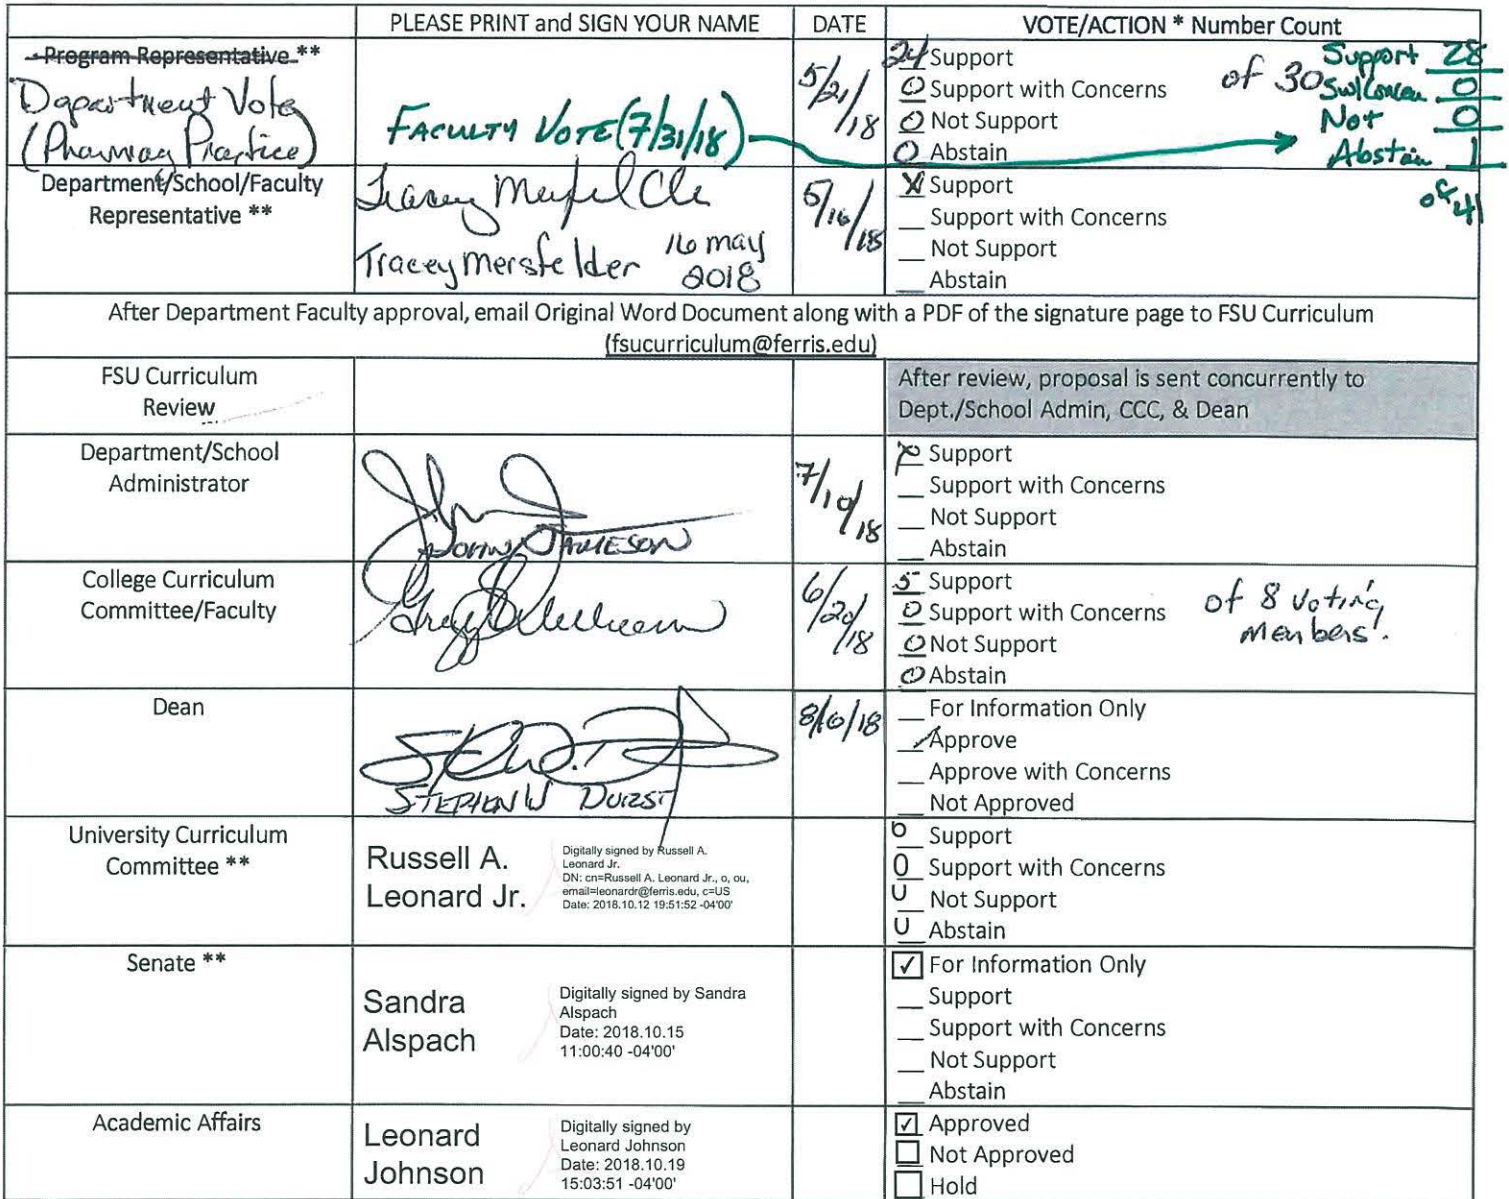 PLEASE PRINT and SIGN YOUR NAME DATE VOTE/ACTION * Number Count
Program Representative **
Department Vote
(Pharmacy Practice)
FACULTY VOTE (7/31/18)
5/21/18
24 Support
0 Support with Concerns
0 Not Support
0 Abstain
of 30
Support 28
0
Not 0
Abstain 1
of 41
Department/School/Faculty
Representative **
Tracey Mersfelder 16 may
2018
5/16/18
X Support
__ Support with Concerns
__ Not Support
__ Abstain
After Department Faculty approval, email Original Word Document along with a PDF of the signature page to FSU Curriculum
(fsucurriculum@ferris.edu)
FSU Curriculum
Review
After review, proposal is sent concurrently to
Dept./School Admin, CCC, & Dean
Department/School
Administrator
JOHN JAMESON
7/10/18
X Support
__ Support with Concerns
__ Not Support
__ Abstain
College Curriculum
Committee/Faculty
6/20/18
5 Support
0 Support with Concerns
0 Not Support
0 Abstain
of 8 voting
members!
Dean
STEPHEN W DURST
8/6/18
__ For Information Only
✓ Approve
__ Approve with Concerns
__ Not Approved
University Curriculum
Committee **
Russell A.
Leonard Jr.
Digitally signed by Russell A.
Leonard Jr.
DN: cn=Russell A. Leonard Jr., o, ou,
email=leonardr@ferris.edu, c=US
Date: 2018.10.12 19:51:52 -04'00'
Support
0 Support with Concerns
Not Support
Abstain
Senate **
Sandra
Alspach
Digitally signed by Sandra
Alspach
Date: 2018.10.15
11:00:40 -04'00'
☑ For Information Only
__ Support
__ Support with Concerns
__ Not Support
__ Abstain
Academic Affairs
Leonard
Johnson
Digitally signed by
Leonard Johnson
Date: 2018.10.19
15:03:51 -04'00'
☑ Approved
☐ Not Approved
☐ Hold